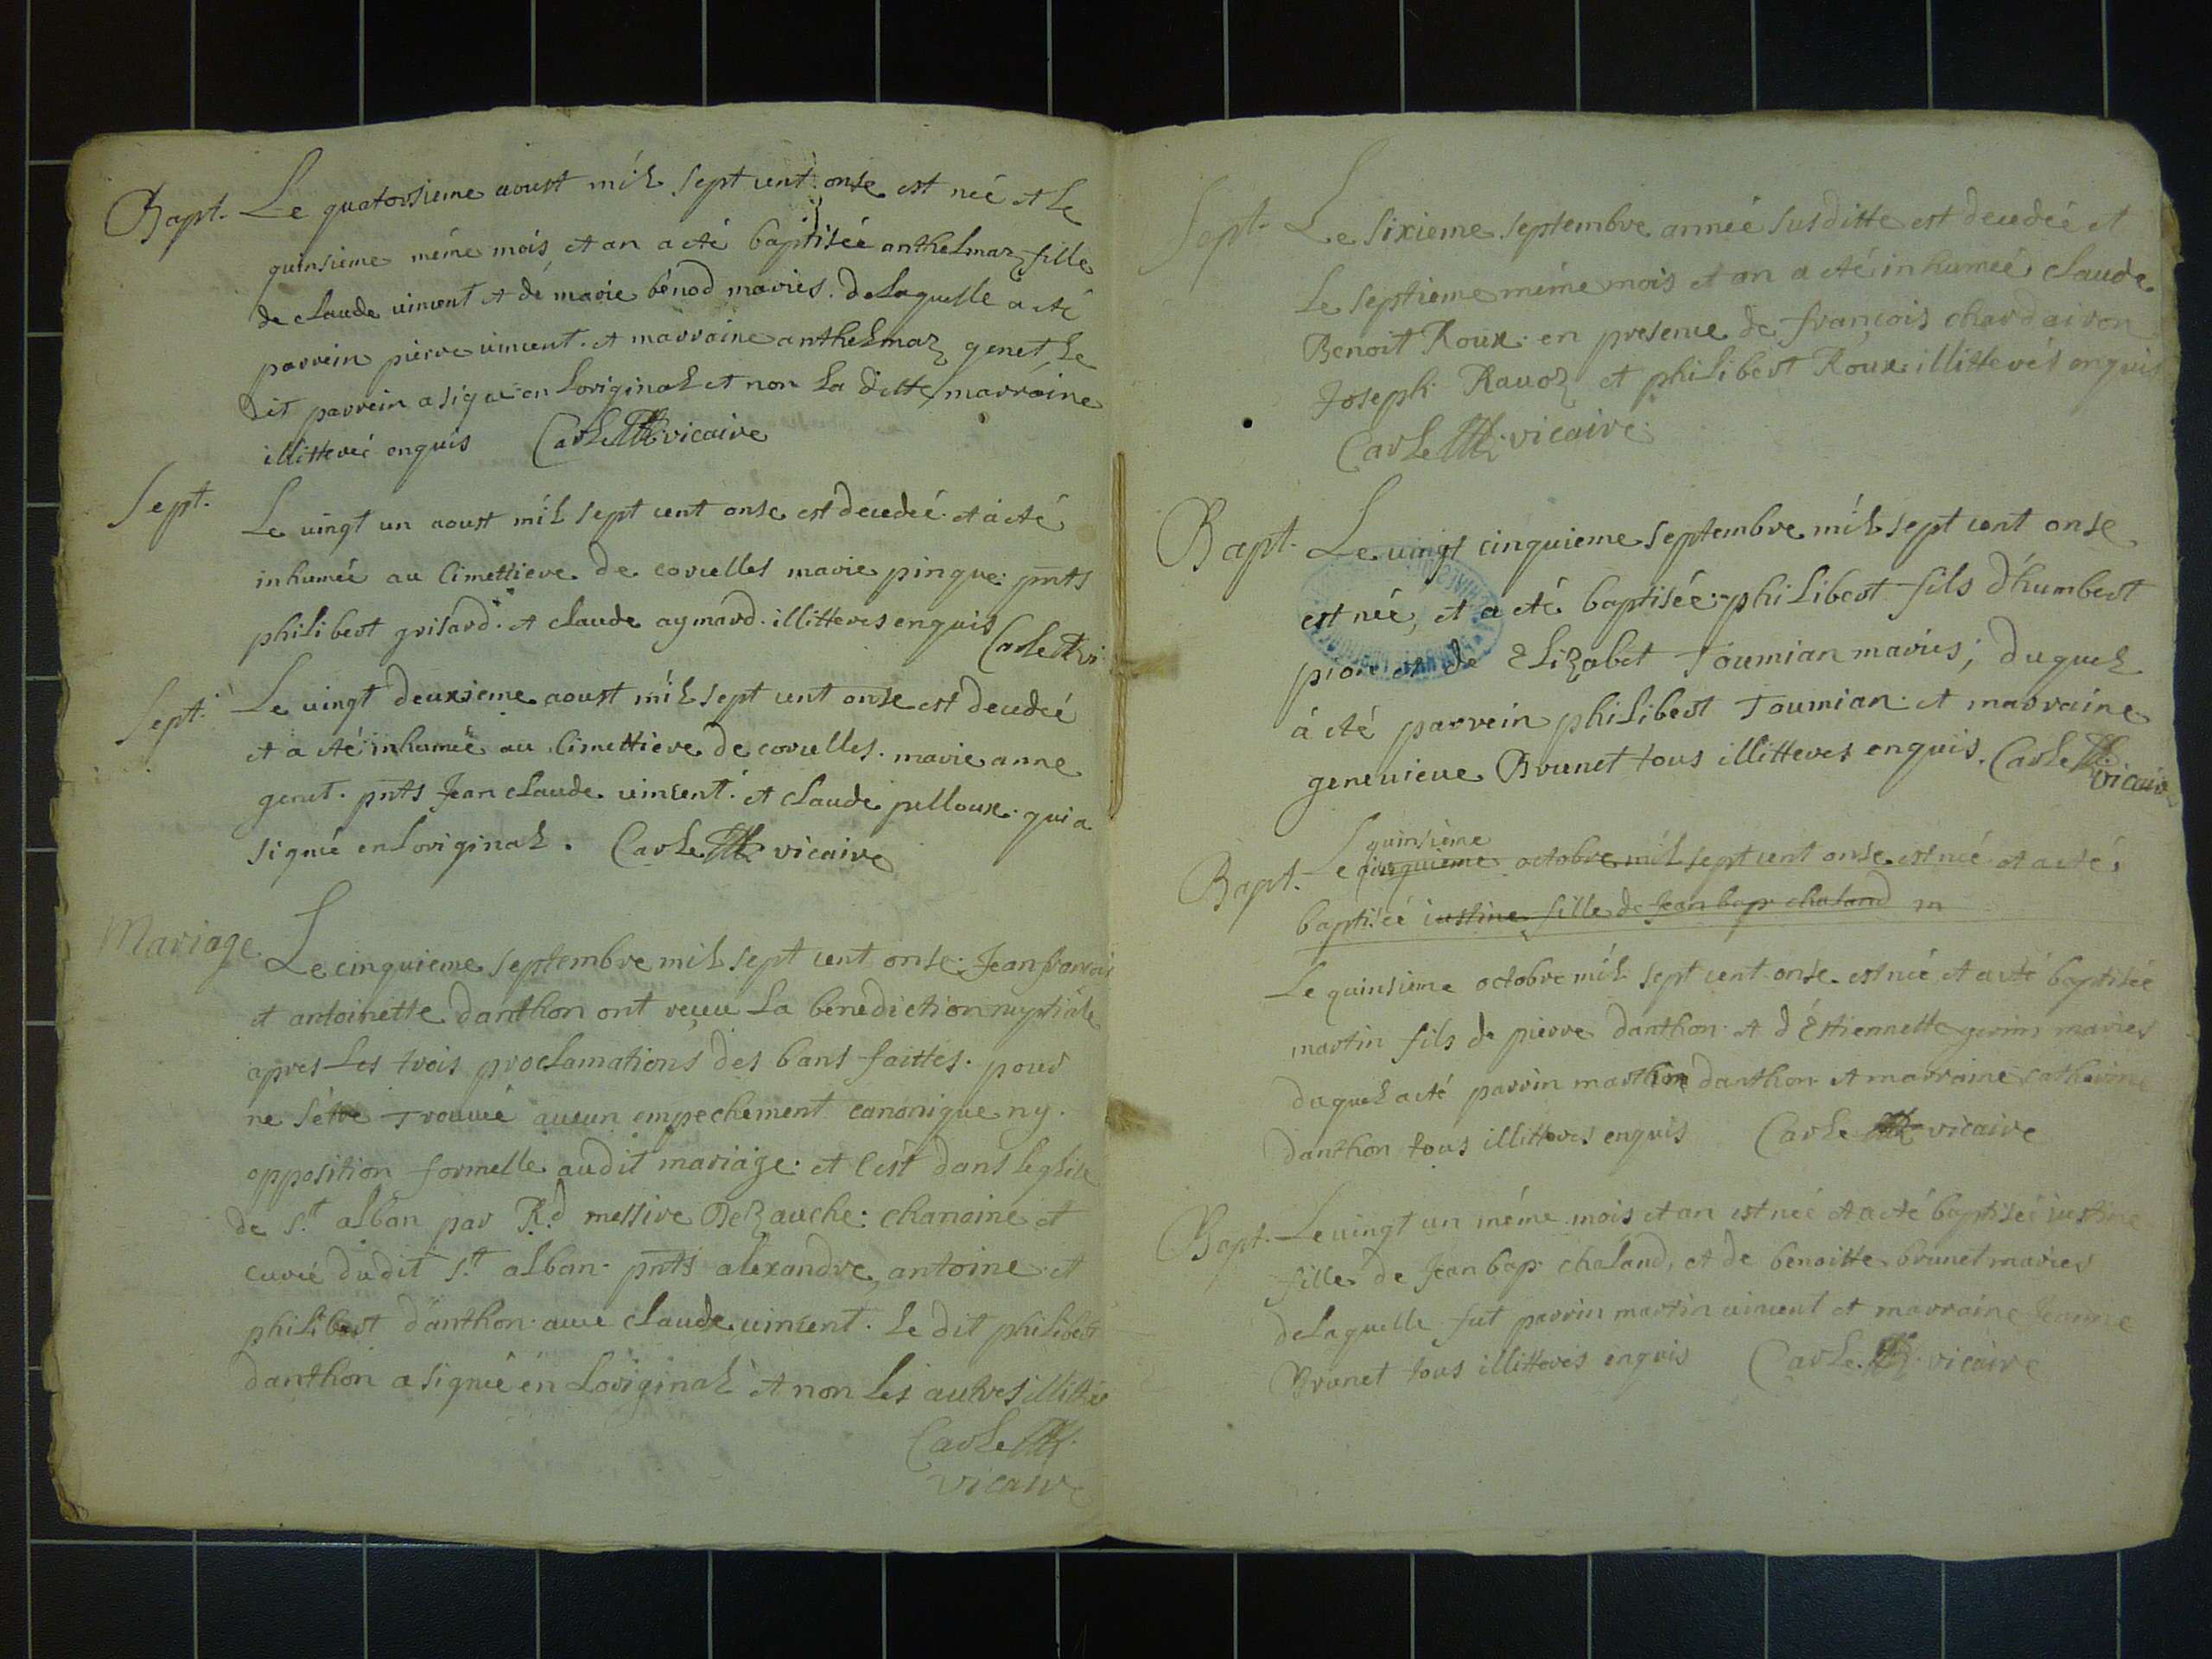 Bapt. Le quatorsieme aoust mil sept cent onse est neé et le
quinsieme même mois et an a eté baptiseé anthelmaz fille
de claude vincent et de marie bénod mariés. de laquelle a eté
parrein pierre vincent. et marraine anthelmaz genet, le
dit parrein a signé en loriginal et non la ditte marraine
illitteré enquis Carle vicaire
Sept. Le vingt un aoust mil sept cent onse est decedeé et a eté
inhumeé au cimettiere de corcelles marie pingue: pnts
philibert grisard. et claude aymard. illitteres enquis Carle vi
Sept. Le vingt deuxieme aoust mil sept cent onse est decedeé
et a eté inhumeé au cimettiere de corcelles. marie anne
genet. pnts Jean claude vincent. et claude pelloux. qui a
signé en loriginal. Carle vicaire
Mariage Le cinquieme septembre mil sept cent onse. Jean francois
et antoinette danthon ont reçeu la benediction nuptiale
apres les trois proclamations des bans faittes. pour
ne s'étre trouvé aucun empechement canonique ny.
opposition formelle audit mariage. et c'est dans leglise
de s.t alban par R.d messire Dezauche: chanoine et
cureé dudit s.t alban. pnts alexandre, antoine et
philibert danthon. avec claude vincent. le dit philibert
danthon a signeé en loriginal et non les autres illitteres
Carle
vicaire
Sept. Le sixieme septembre anneé susditte est decedeé et
le septieme même mois et an a eté inhumeé claude
Benoit Roux. en presence de françois chardairon
Joseph Ravoz et philibert Roux illitterés enquis
Carle vicaire.
Bapt. Le vingt cinquieme septembre mil sept cent onse
est neé, et a eté baptiseé philibert fils d'humbert
et de Elizabet Toumian mariés; duquel
á eté parrein philibert Toumian. et marraine
genevieve Brunet tous illitteres enquis. Carle
vicaire
quinsieme
Bapt. Le cinquieme octobre mil sept cent onse est neé et a eté
baptiseé iustine fille de Jean bap chaland m
Le quinsieme octobre mil sept cent onse est neé et a eté baptiseé
martin fils de pierre danthon. et d'Estiennette mariés
duquel a eté parrin danthon et marraine catherine
danthon tous illitteres enquis Carle vicaire
Bapt. Le vingt un même mois et an est neé et a eté baptiseé iustine
fille de Jean bap chaland, et de benoitte brunet mariés
delaquelle fut parrin martin vincent et marraine Jeanne
Brunet tous illitterés enquis Carle vicaire